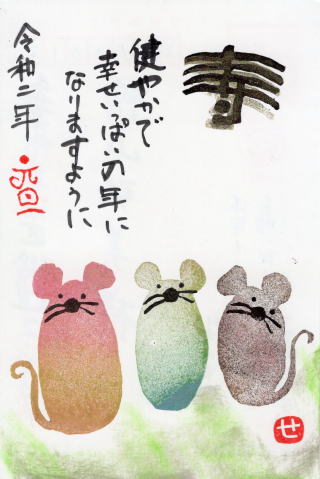 寿
健やかで
幸せいっぱいの年に
なりますように
令和二年
元旦
せ